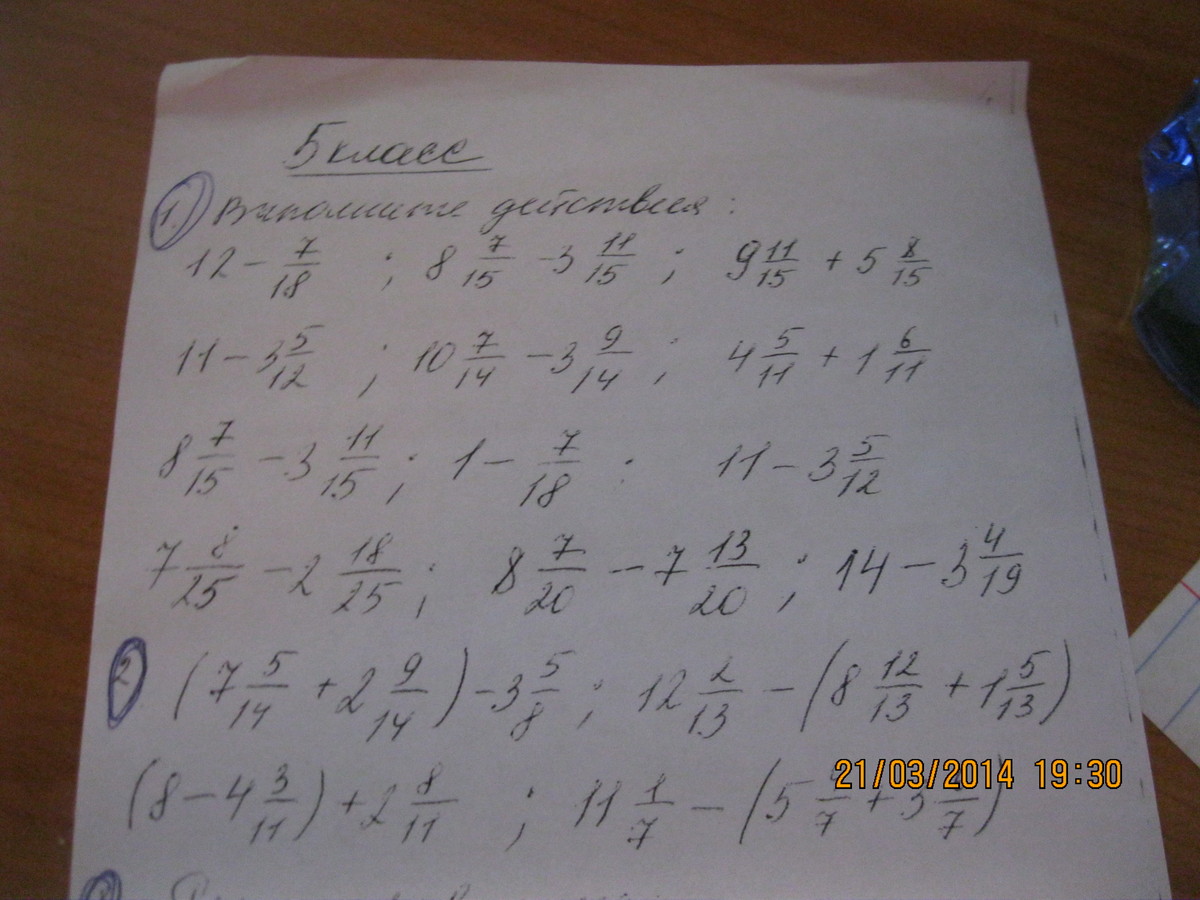 5 класс
1. Выполните действия:
12 - 7/18 ; 8 7/15 - 3 11/15 ; 9 11/15 + 5 8/15
11 - 3 5/12 ; 10 7/14 - 3 9/14 ; 4 5/11 + 1 6/11
8 7/15 - 3 11/15 ; 1 - 7/18 : 11 - 3 5/12
7 8/25 - 2 18/25 ; 8 7/20 - 7 13/20 ; 14 - 3 4/19
2 (7 5/14 + 2 9/14) - 3 5/8 ; 12 2/13 - (8 12/13 + 1 5/13)
(8 - 4 3/11) + 2 8/11 ; 11 1/7 - (5 /7 + 3 /7)
21/03/2014 19:30